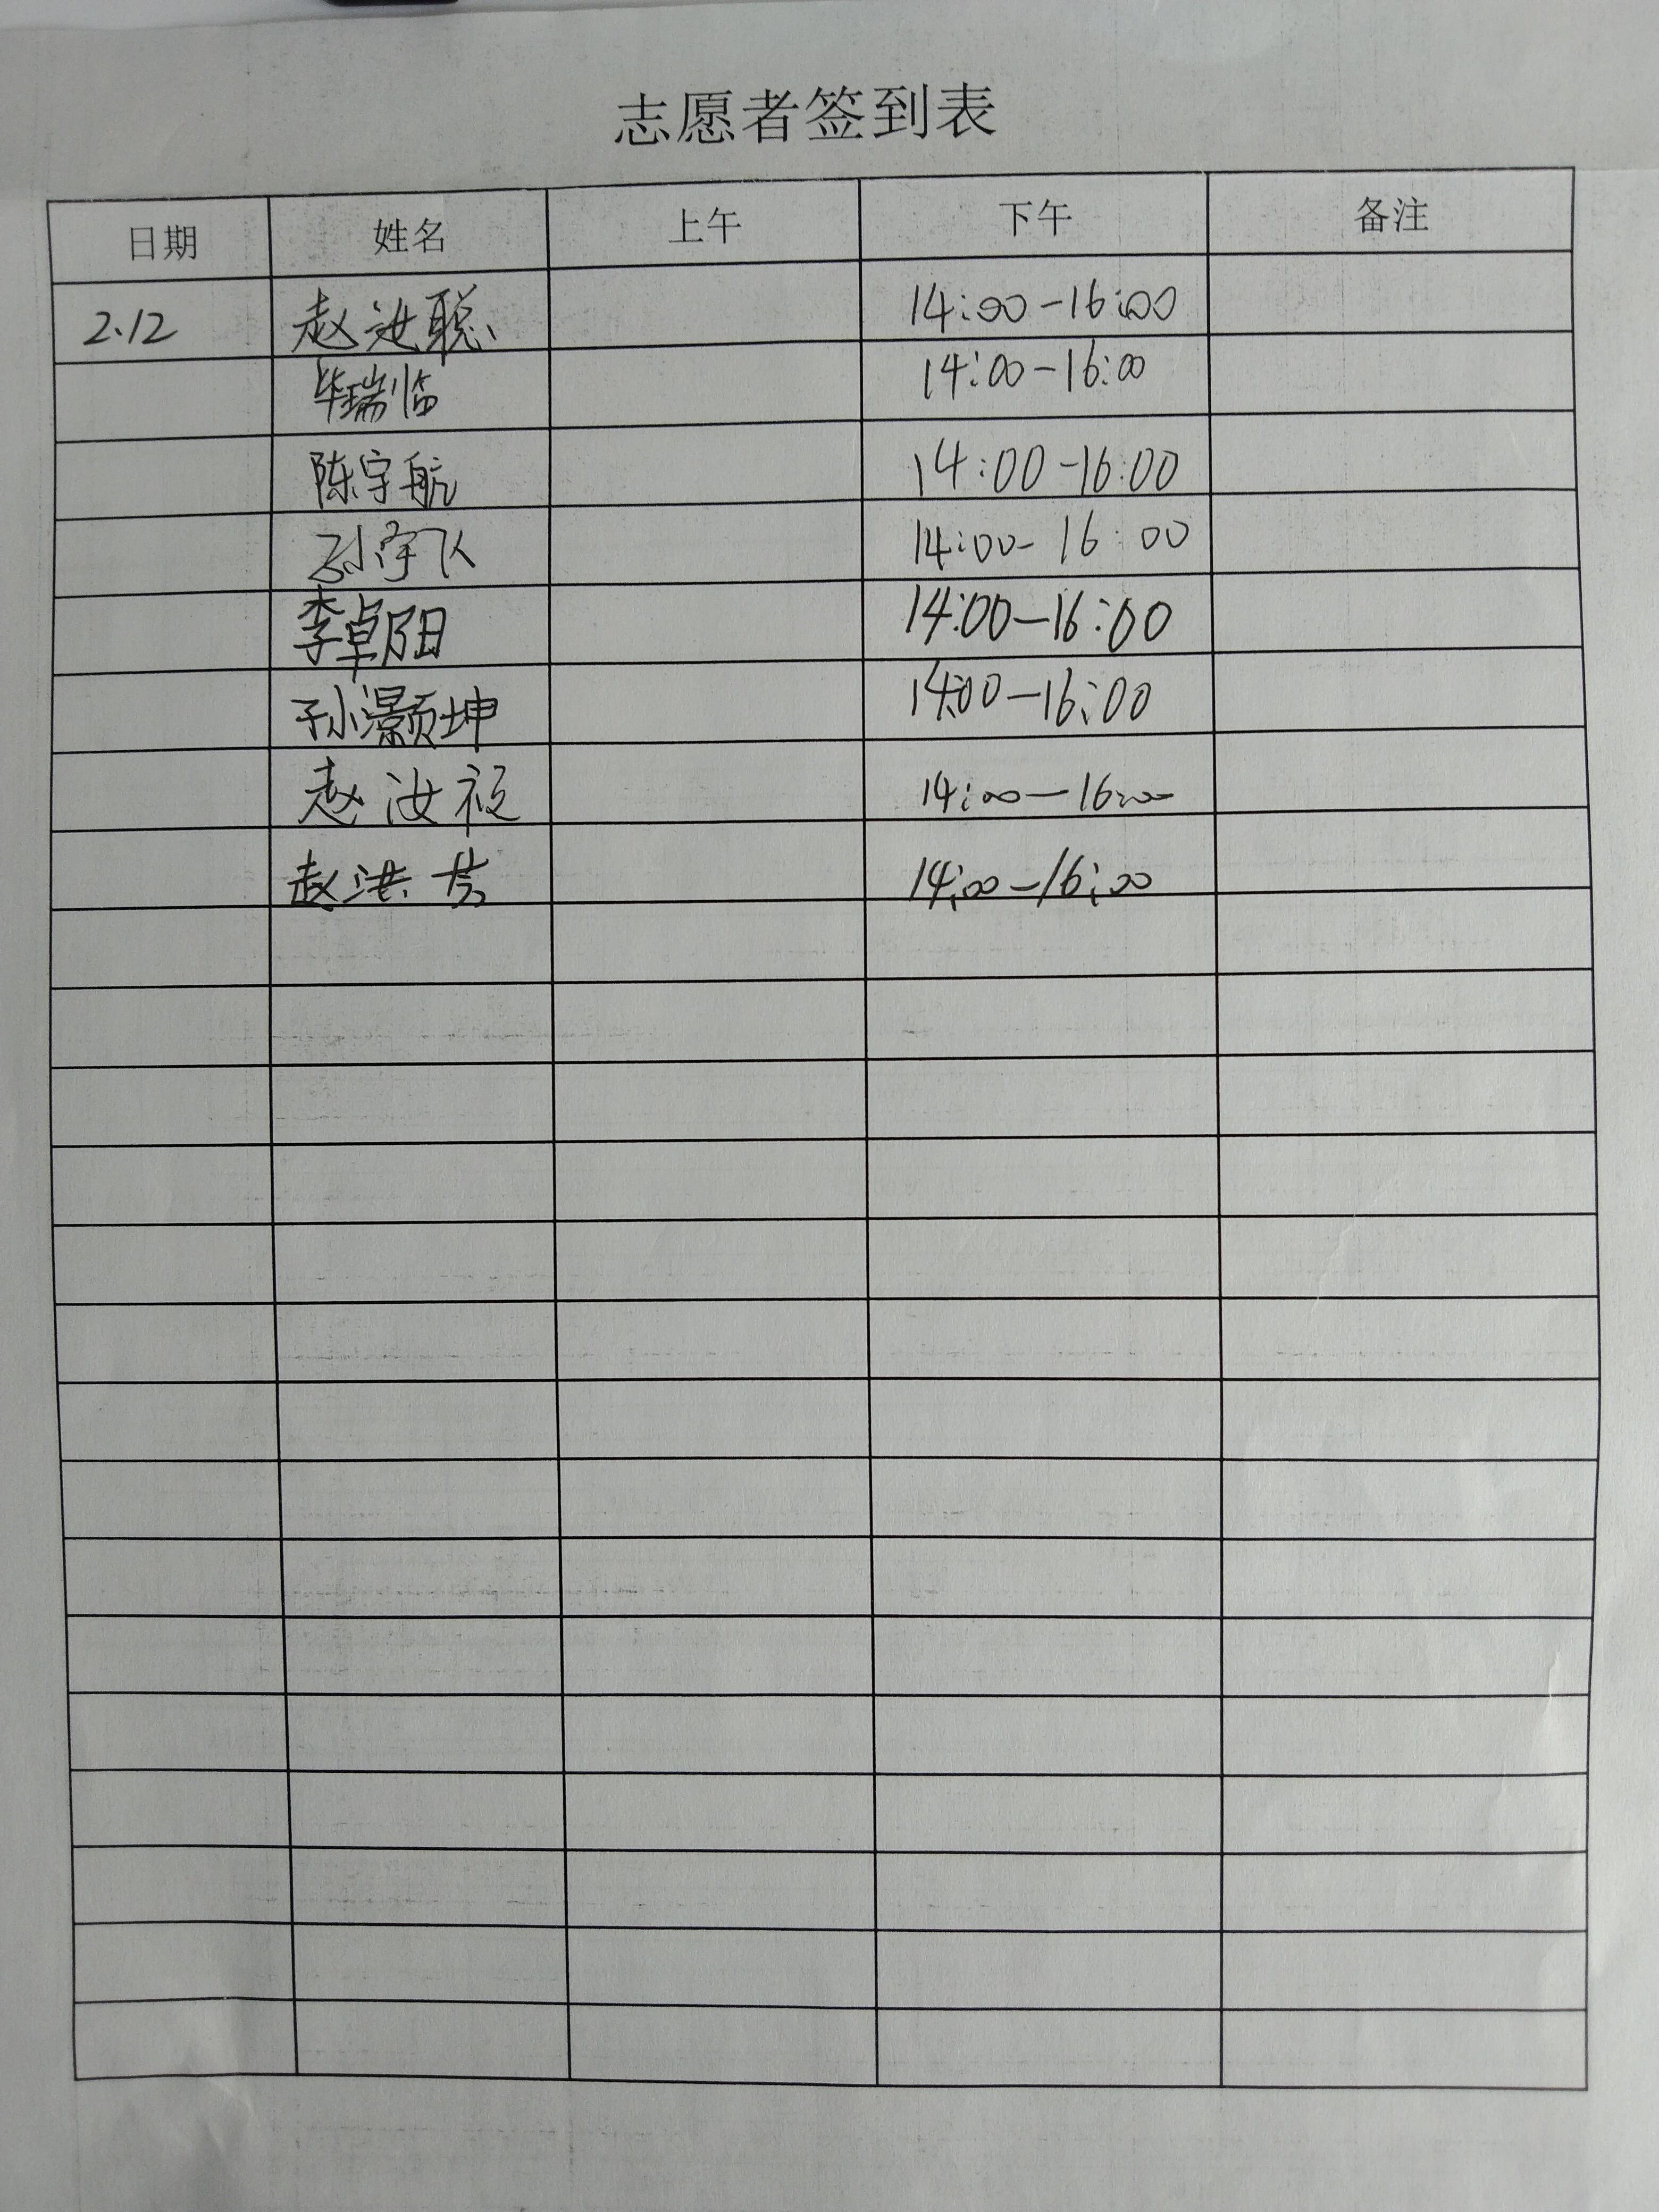 志愿者签到表
日期 姓名 上午 下午 备注
2.12 赵汝聪 14:00-16:00
毕瑞临 14:00-16:00
陈宇航 14:00-16:00
孙宇飞 14:00-16:00
李卓阳 14:00-16:00
孙灏坤 14:00-16:00
赵汝 14:00-16:00
赵洪芸 14:00-16:00